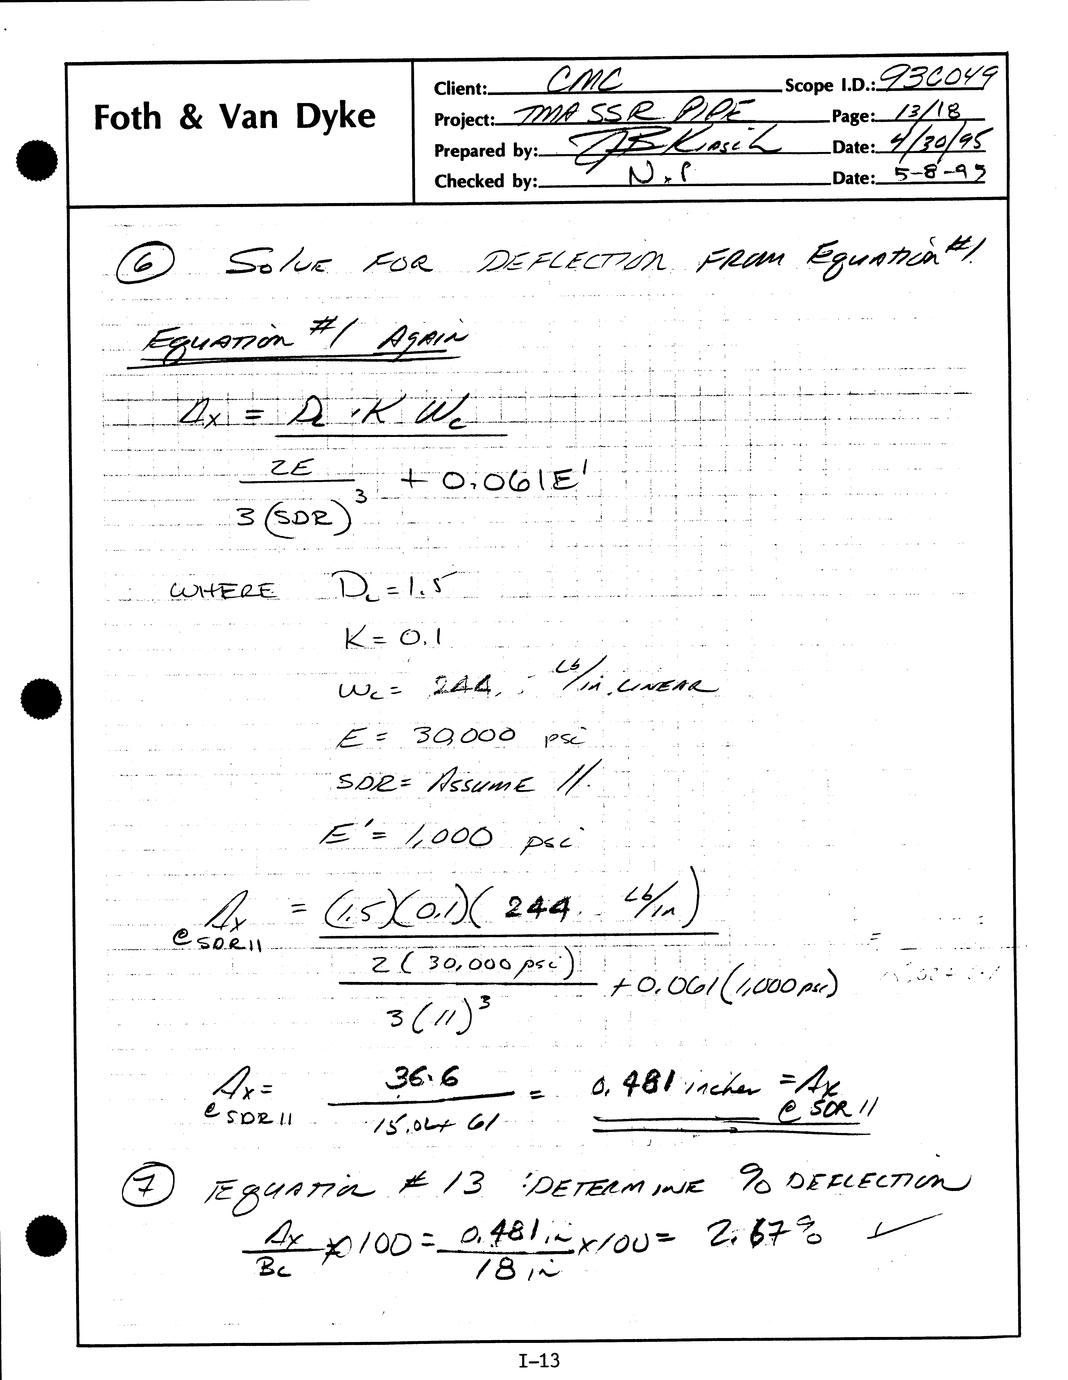 Foth & Van Dyke
Client: CMC Scope I.D.: 93C049
Project: TMA SSR PIPE Page: 13/18
Prepared by: Date: 4/30/95
Checked by: N.P Date: 5-8-95
6 SOLVE FOR DEFLECTION FROM Equation #1.
EQUATION #1 AGAIN
Δx = DL · K Wc
2E
3(SDR)³ + 0.061E'
WHERE DL = 1.5
K = 0.1
Wc = 244. Lb/in. LINEAR
E = 30,000 psi
SDR = ASSUME 11.
E' = 1,000 psi
Δx @ SDR 11 = (1.5)(0.1)(244. Lb/in)
2(30,000 psi)
3(11)³ + 0.061(1,000 psi) =
Δx = @ SDR 11 36.6 = 0.481 inches = Δx @ SDR 11
15.02 + 61
7 EQUATION #13 : DETERMINE % DEFLECTION
Δx x100 = 0.481 in x100 = 2.67% ✓
Bc 18 in
I-13